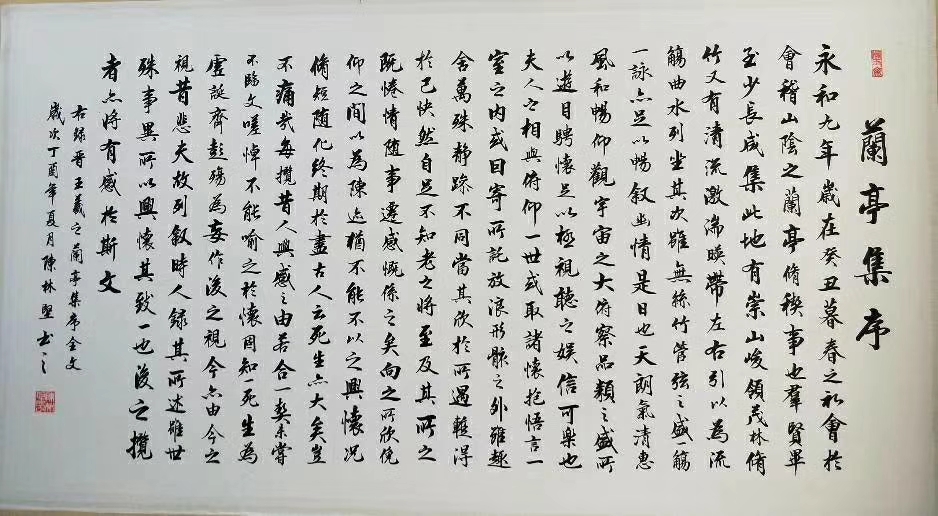 蘭亭集序
永和九年歲在癸丑暮春之初會於
會稽山陰之蘭亭脩稧事也羣賢畢
至少長咸集此地有崇山峻領茂林脩
竹又有清流激湍暎帶左右引以為流
觴曲水列坐其次雖無絲竹管弦之盛一觴
一詠亦足以暢敘幽情是日也天朗氣清惠
風和暢仰觀宇宙之大俯察品類之盛所
以遊目騁懷足以極視聽之娛信可樂也
夫人之相與俯仰一世或取諸懷抱悟言一
室之内或因寄所託放浪形骸之外雖趣
舍萬殊静躁不同當其欣於所遇輒得
於己快然自足不知老之將至及其所之
既惓情随事遷感慨係之矣向之所欣俛
仰之間以為陳迹猶不能不以之興懷況
脩短随化終期於盡古人云死生亦大矣豈
不痛哉每攬昔人興感之由若合一契未嘗
不臨文嗟悼不能喻之於懷固知一死生為
虛誕齊彭殤為妄作後之視今亦由今之
視昔悲夫故列敘時人錄其所述雖世
殊事異所以興懷其致一也後之攬
者亦將有感於斯文
右錄晉王羲之蘭亭集序全文
歲次丁酉年夏月陳林堅書之